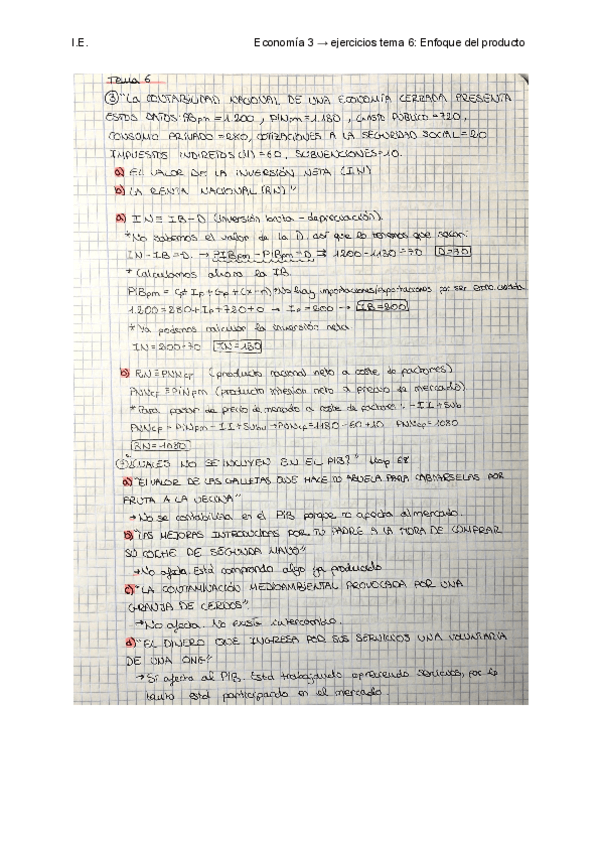 I.E. Economía 3 → ejercicios tema 6: Enfoque del producto
Tema 6
③ "LA CONTABILIDAD NACIONAL DE UNA ECONOMÍA CERRADA PRESENTA
ESTOS DATOS: PIBpm = 1200, PINpm = 1180, GASTO PÚBLICO = 720,
CONSUMO PRIVADO = 280, COTIZACIONES A LA SEGURIDAD SOCIAL = 210
IMPUESTOS INDIRECTOS (II) = 60, SUBVENCIONES = 10.
a) EL VALOR DE LA INVERSIÓN NETA (IN)
b) LA RENTA NACIONAL (RN)"
a) IN ≡ IB - D (Inversión bruta - depreciación)
* No sabemos el valor de la D, así que lo tenemos que sacar:
IN - IB = D. → PIBpm - PIBpm = D → 1200 - 1130 = 70 D = 70
* Calculamos ahora la IB
PIBpm = Cp + Ip + Gp + (x - m) * No hay importaciones/exportaciones por ser econ. cerrada
1.200 = 280 + Ip + 720 + 0 → Ip = 200 → IB = 200
* Ya podemos calcular la inversión neta
IN = 200 - 70 IN = 130
b) RN ≡ PNNcf (producto nacional neto a coste de factores)
PNNcf ≡ PINpm (producto interior neto a precio de mercado)
* Para pasar de precio de mercado a coste de factores: - II + Sub
PNNcf = PINpm - II + Subv → PNNcf = 1180 - 60 + 10 PNNcf = 1080
RN = 1080
¿CUALES NO SE INCLUYEN EN EL PIB?"
a) "EL VALOR DE LAS GALLETAS QUE HACE TU ABUELA PARA CAMBIÁRSELAS POR
FRUTA A LA VECINA"
→ No se contabiliza en el PIB porque no afecta al mercado.
b) "LAS MEJORAS INTRODUCIDAS POR TU PADRE A LA HORA DE COMPRAR
SU COCHE DE SEGUNDA MANO"
→ No afecta. Está comprando algo ya producido
c) "LA CONTAMINACIÓN MEDIOAMBIENTAL PROVOCADA POR UNA
GRANJA DE CERDOS"
→ No afecta. No existe intercambio.
d) "EL DINERO QUE INGRESA POR SUS SERVICIOS UNA VOLUNTARIA
DE UNA ONG"
→ Sí afecta al PIB. Está trabajando ofreciendo servicios, por lo
tanto está participando en el mercado.